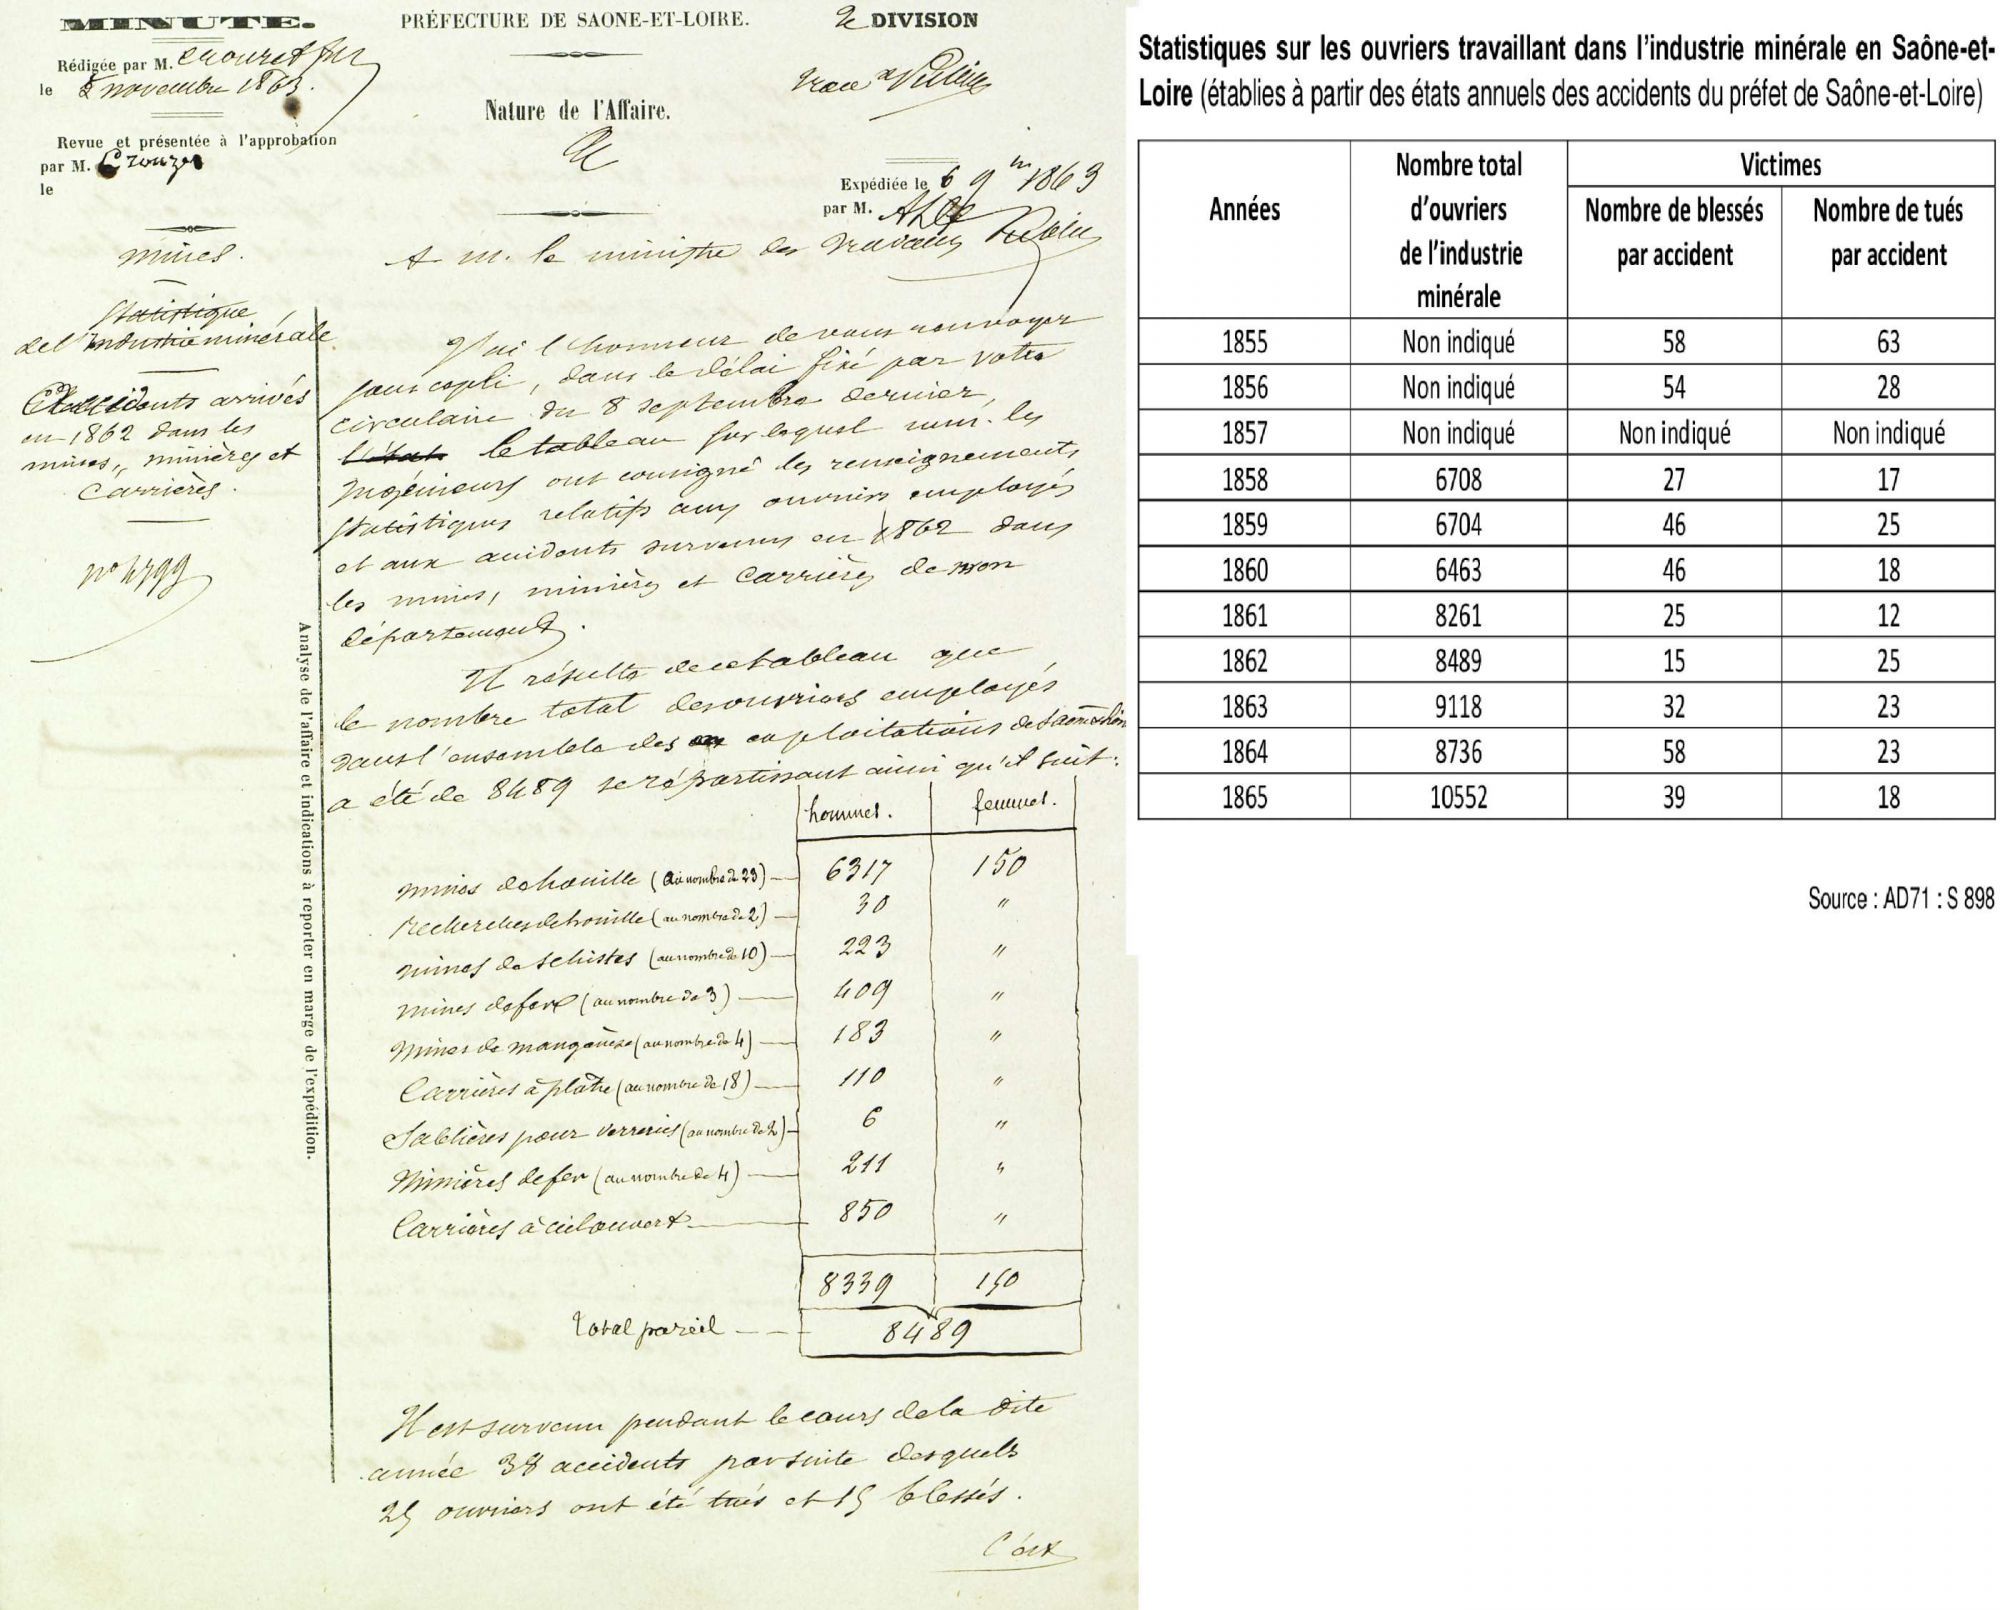 MINUTE.
Rédigée par M.
le 5 novembre 1863.
Revue et présentée à l'approbation
par M. Crouzet
le
PRÉFECTURE DE SAONE-ET-LOIRE.
Nature de l'Affaire.
2e DIVISION
Expédiée le 6 9bre 1863
par M.
mines.
Statistique
de l'Industrie minérale
Etat
accidents arrivés
en 1862 dans les
mines, minières et
Carrières.
no 4799
Analyse de l'affaire et indications à reporter en marge de l'expédition.
A M. le ministre des travaux Publics
J'ai l'honneur de vous renvoyer
sous ce pli, dans le délai fixé par votre
circulaire du 8 septembre dernier,
l'état le tableau sur lequel mm. les
Ingénieurs ont consigné les renseignements
statistiques relatifs aux ouvriers employés
et aux accidents survenus en 1862 dans
les mines, minières et Carrières de mon
département.
Il résulte de ce tableau que
le nombre total des ouvriers employés
dans l'ensemble des exploitations de Saône & Loire
a été de 8489 se répartissant ainsi qu'il suit :
hommes. femmes.
mines de houille (au nombre de 23) — 6317 150
recherches de houille (au nombre de 2) — 30 "
mines de schistes (au nombre de 10) — 223 "
mines de fer (au nombre de 3) — 409 "
Mines de manganèse (au nombre de 4) — 183 "
Carrières à plâtre (au nombre de 18) — 110 "
Sablières pour verreries (au nombre de 2) — 6 "
Minières de fer (au nombre de 4) — 211 "
Carrières à ciel ouvert — 850 "
8339 150
total pareil — 8489
Il est survenu pendant le cours de la dite
année 38 accidents par suite desquels
25 ouvriers ont été tués et 15 blessés.
Statistiques sur les ouvriers travaillant dans l'industrie minérale en Saône-et-
Loire (établies à partir des états annuels des accidents du préfet de Saône-et-Loire)
Années
Nombre total
d'ouvriers
de l'industrie
minérale
Victimes
Nombre de blessés
par accident
Nombre de tués
par accident
1855 Non indiqué 58 63
1856 Non indiqué 54 28
1857 Non indiqué Non indiqué Non indiqué
1858 6708 27 17
1859 6704 46 25
1860 6463 46 18
1861 8261 25 12
1862 8489 15 25
1863 9118 32 23
1864 8736 58 23
1865 10552 39 18
Source : AD71 : S 898